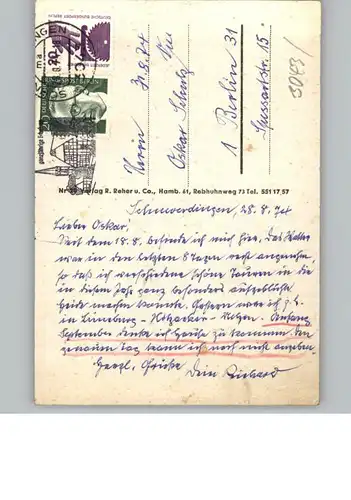 DEUTSCHE BUNDESPOST BERLIN
Herrn
Oskar
1 Berlin 31
Spessartstr. 15
3083/
R. Reher u. Co., Hamb. 61, Rebhuhnweg 73 Tel. 551 17 57
Schneverdingen, 28.8.74
Lieber Oskar!
Seit dem 18.8. befinde ich mich hier. Das Wetter
war in den letzten 8 Tagen recht angenehm,
so daß ich verschiedene schöne Touren in die
in diesem Jahr ganz besonders aufgeblühte
Heide machen konnte. Gestern war ich z.B.
in Lüneburg - Hitzacker - Uelzen. Anfang
September denke ich zu kommen. Den
genauen Tag kann ich noch nicht angeben.
Herzl. Grüße
Dein Richard